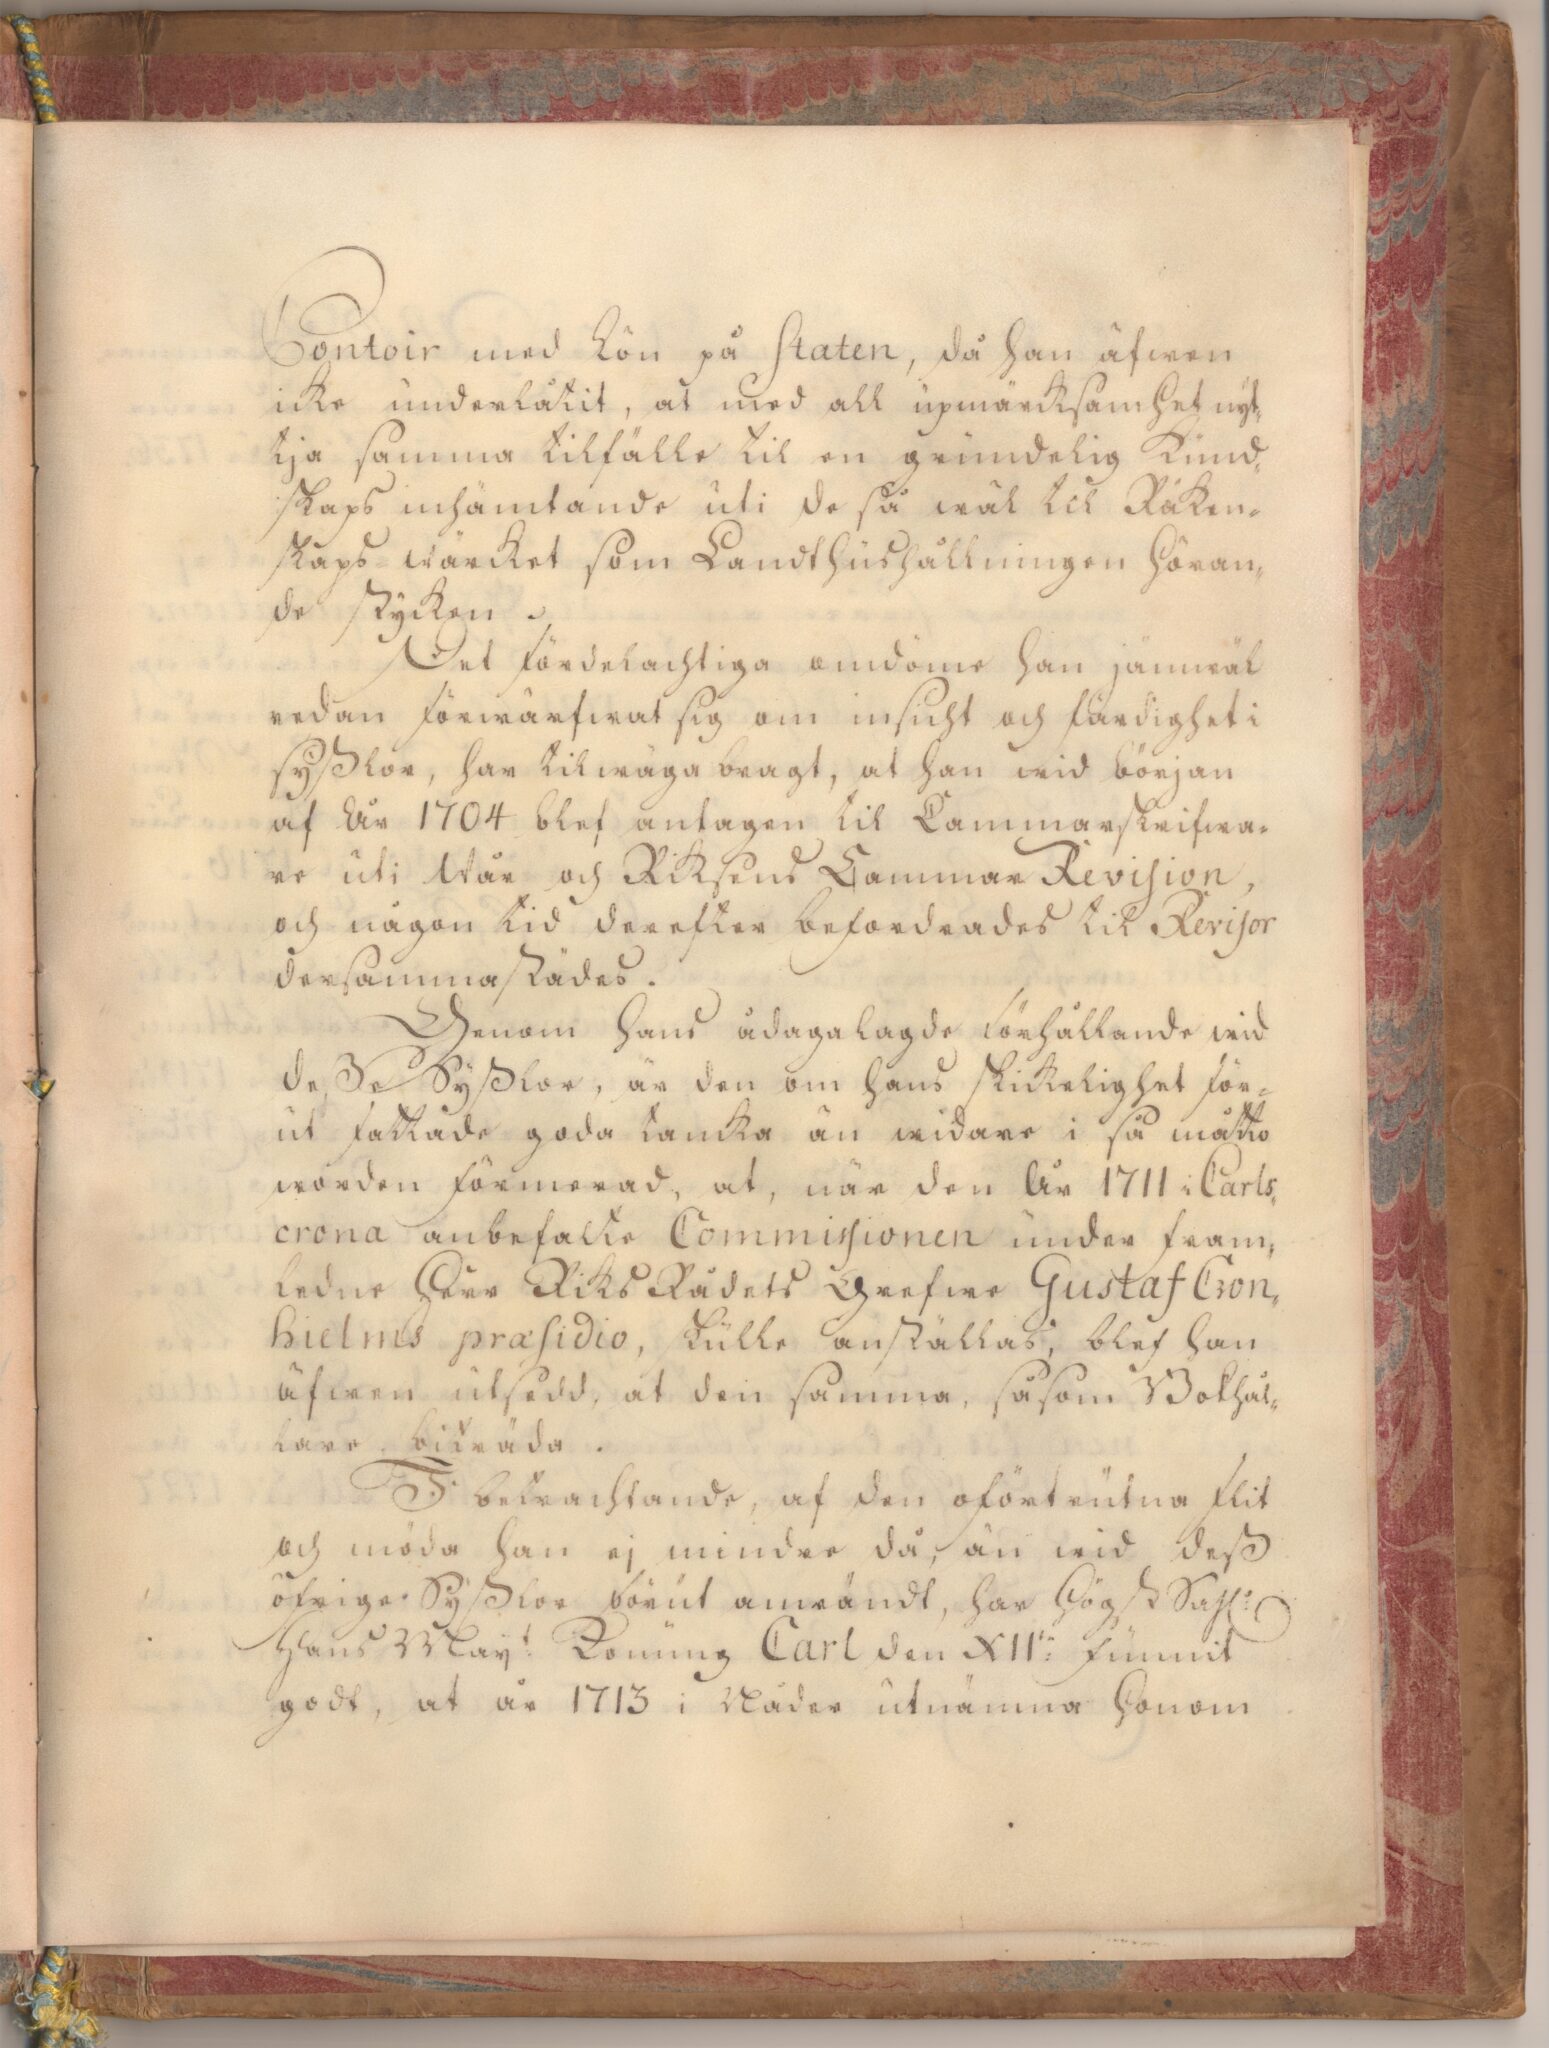 Contoir med Lön på Staten, då han äfwen
icke underlåtit, at med all upmärcksamhet nyt-
tja samma tilfälle til en grundelig Kund-
skaps inhämtande uti de så wäl til Räken-
skaps-wärcket som Landthushållningen höran-
de stycken.
Det fördelachtiga omdöme han jämwäl
redan förwärfwat sig om insicht och färdighet i
sysslor, har tilwäga bragt, at han wid början
af År 1704 blef antagen til Cammarskrifwa-
re uti Wår och Riksens Cammar Revision,
och någon tid derefter befordrades til Revisor
dersammastädes.
Genom hans ådagalagde förhållande wid
desse Sysslor, är den om hans skickelighet för-
ut fattade goda tancka än widare i så måtto
worden förmerad, at, när den År 1711 i Carls-
crona anbefalte Commissionen under fram-
ledne Herr Riks Rådets Grefwe Gustaf Cron-
hielms præsidio, skulle anställas, blef han
äfwen utsedd, at den samma, såsom Bokhål-
lare biträda.
I betrachtande, af den oförtrutna flit
och möda han ej mindre då, än wid dess
öfrige Sysslor förut anwändt, har Högst Sahl:
Hans May:t Konung Carl den XII:te funnit
godt, at år 1713 i Nåder utnämna honom